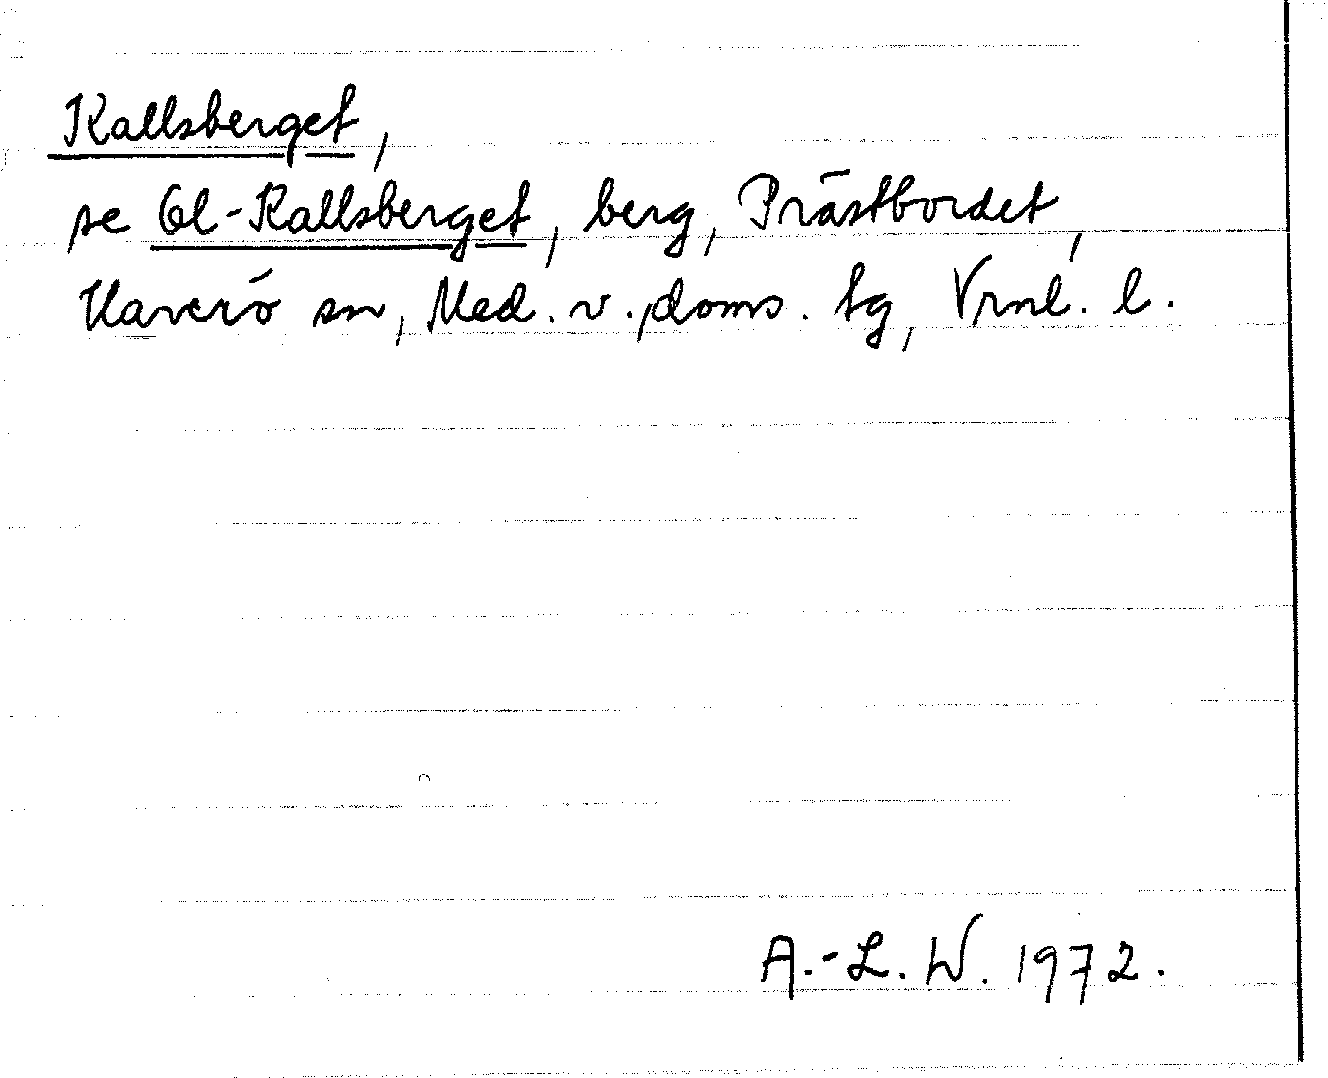 Kallsberget,
se Ol-Kallsberget, berg, Prästbordet,
Haverö sn, Med. v. doms. tg, Vrnl. l.
A.-L. W. 1972.